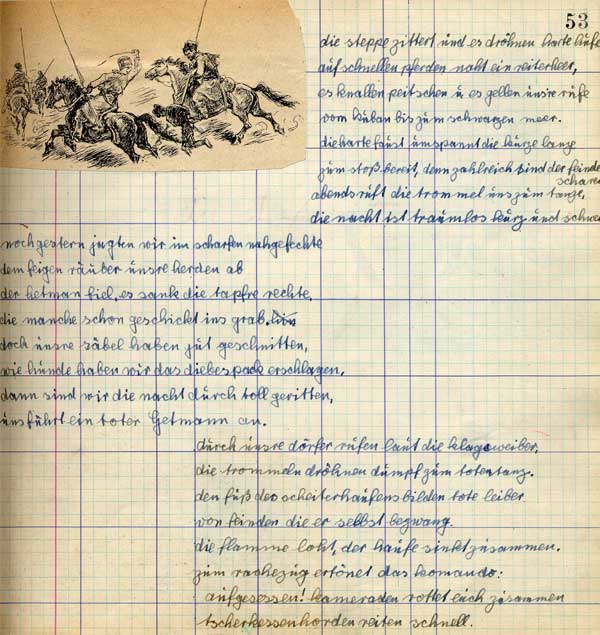 53
die steppe zittert und es dröhnen harte hufe
auf schnellen pferden naht ein reiterheer,
es knallen peitschen u es gellen unsre rufe
vom kuban bis zum schwarzen meer.
die harte faust umspannt die kurze lanze
zum stoß bereit, denn zahlreich sind der feinde
scharen
abends ruft die trommel uns zum tanze,
die nacht ist traumlos kurz und schwer
noch gestern jagten wir im scharfen nahgefechte
dem feigen räuber unsre herden ab
der hetman fiel, es sank die tapfre rechte,
die manche schon geschickt ins grab.
doch unsre säbel haben gut geschnitten,
wie hunde haben wir das diebespack erschlagen,
dann sind wir die nacht durch toll geritten,
uns führt ein toter Getmann an.
durch unsre dörfer rufen laut die klageweiber,
die trommeln dröhnen dumpf zum totentanz.
den fuß des scheiterhaufens bilden tote leiber
von feinden die er selbst bezwang.
die flamme loht, der haufe sinkt zusammen.
zum rachezug ertönet das komando:
aufgesessen! kameraden rottet euch zusammen
tscherkessenhorden reiten schnell.